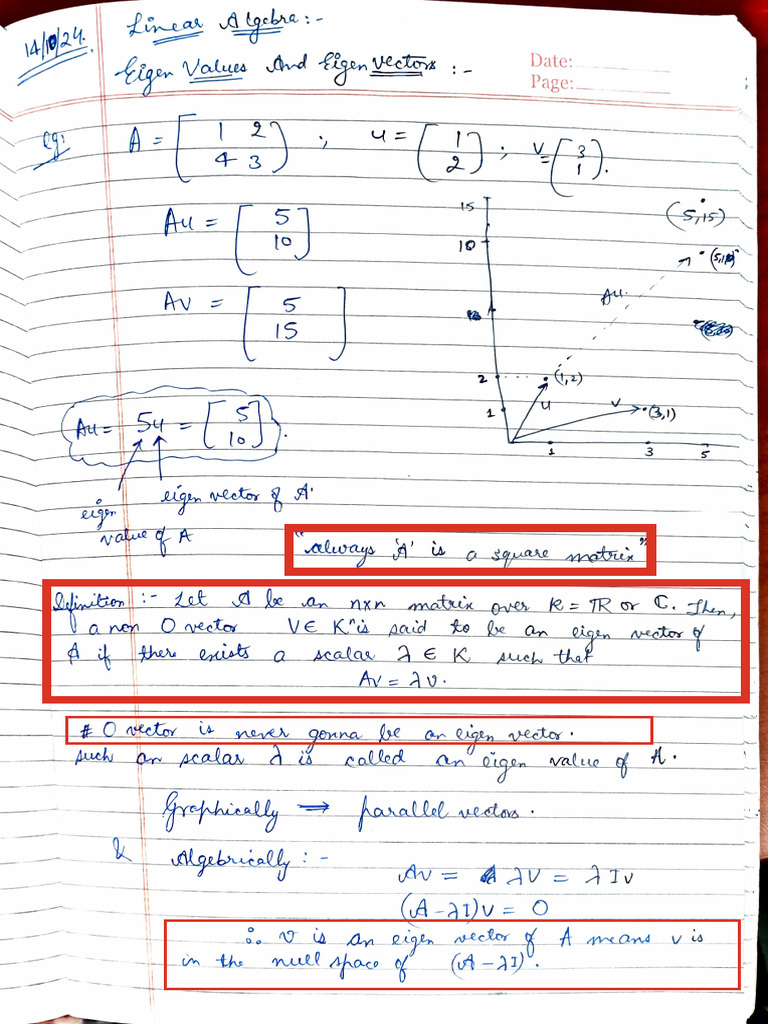 14/10/24.
Linear Algebra:-
Eigen Values And Eigen vectors :-
Date:
Page:
eg: A = [1 2; 4 3] ; u = [1; 2] ; v = [3; 1].
Au = [5; 10]
Av = [5; 15]
15
10
2
1
1 3 5
(5,15)
Au.
(1,2)
u
v
(3,1)
Au = 5u = [5; 10].
eigen value of A
eigen vector of A.
"Always 'A' is a square matrix"
Definition :- Let A be an n×n matrix over K = ℝ or ℂ. Then,
a non 0 vector V ∈ Kⁿ is said to be an eigen vector of
A if there exists a scalar λ ∈ K such that
Av = λv.
# 0 vector is never gonna be an eigen vector.
such an scalar λ is called an eigen value of A.
Graphically → parallel vectors.
& Algebrically :-
Av = λV = λIv
(A-λI)v = 0
∴ v is an eigen vector of A means v is
in the null space of (A-λI).